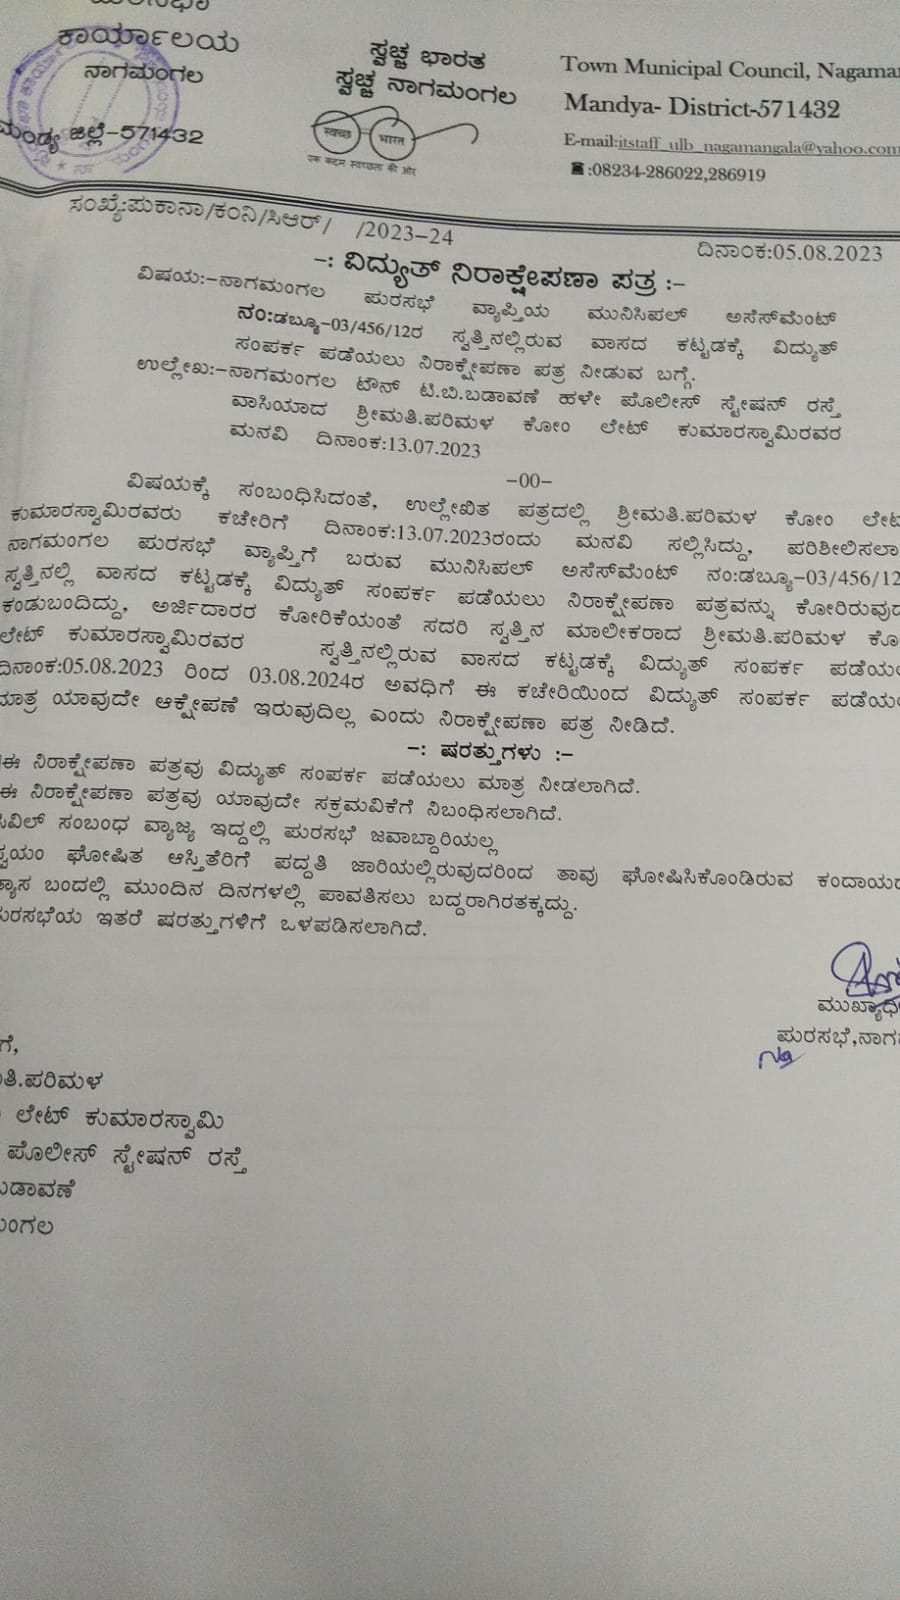 ಕಾರ್ಯಾಲಯ
ನಾಗಮಂಗಲ
ಮಂಡ್ಯ ಜಿಲ್ಲೆ-571432
ಸ್ವಚ್ಛ ಭಾರತ
ಸ್ವಚ್ಛ ನಾಗಮಂಗಲ
स्वच्छ भारत
एक कदम स्वच्छता की ओर
Town Municipal Council, Nagama
Mandya- District-571432
E-mail:itstaff_ulb_nagamangala@yahoo.com
☎:08234-286022,286919
ಸಂಖ್ಯೆ:ಪುಕಾನಾ/ಕಂನಿ/ಸಿಆರ್/ /2023-24
ದಿನಾಂಕ:05.08.2023
-: ವಿದ್ಯುತ್ ನಿರಾಕ್ಷೇಪಣಾ ಪತ್ರ :-
ವಿಷಯ:-ನಾಗಮಂಗಲ ಪುರಸಭೆ ವ್ಯಾಪ್ತಿಯ ಮುನಿಸಿಪಲ್ ಅಸೆಸ್‌ಮೆಂಟ್
ನಂ:ಡಬ್ಯೂ-03/456/12ರ ಸ್ವತ್ತಿನಲ್ಲಿರುವ ವಾಸದ ಕಟ್ಟಡಕ್ಕೆ ವಿದ್ಯುತ್
ಸಂಪರ್ಕ ಪಡೆಯಲು ನಿರಾಕ್ಷೇಪಣಾ ಪತ್ರ ನೀಡುವ ಬಗ್ಗೆ.
ಉಲ್ಲೇಖ:-ನಾಗಮಂಗಲ ಟೌನ್ ಟಿ.ಬಿ.ಬಡಾವಣೆ ಹಳೇ ಪೊಲೀಸ್ ಸ್ಟೇಷನ್ ರಸ್ತೆ
ವಾಸಿಯಾದ ಶ್ರೀಮತಿ.ಪರಿಮಳ ಕೋಂ ಲೇಟ್ ಕುಮಾರಸ್ವಾಮಿರವರ
ಮನವಿ ದಿನಾಂಕ:13.07.2023
-00-
ವಿಷಯಕ್ಕೆ ಸಂಬಂಧಿಸಿದಂತೆ, ಉಲ್ಲೇಖಿತ ಪತ್ರದಲ್ಲಿ ಶ್ರೀಮತಿ.ಪರಿಮಳ ಕೋಂ ಲೇಟ್
ಕುಮಾರಸ್ವಾಮಿರವರು ಕಚೇರಿಗೆ ದಿನಾಂಕ:13.07.2023ರಂದು ಮನವಿ ಸಲ್ಲಿಸಿದ್ದು, ಪರಿಶೀಲಿಸಲಾ
ನಾಗಮಂಗಲ ಪುರಸಭೆ ವ್ಯಾಪ್ತಿಗೆ ಬರುವ ಮುನಿಸಿಪಲ್ ಅಸೆಸ್‌ಮೆಂಟ್ ನಂ:ಡಬ್ಯೂ-03/456/12
ಸ್ವತ್ತಿನಲ್ಲಿ ವಾಸದ ಕಟ್ಟಡಕ್ಕೆ ವಿದ್ಯುತ್ ಸಂಪರ್ಕ ಪಡೆಯಲು ನಿರಾಕ್ಷೇಪಣಾ ಪತ್ರವನ್ನು ಕೋರಿರುವುದ
ಕಂಡುಬಂದಿದ್ದು, ಅರ್ಜಿದಾರರ ಕೋರಿಕೆಯಂತೆ ಸದರಿ ಸ್ವತ್ತಿನ ಮಾಲೀಕರಾದ ಶ್ರೀಮತಿ.ಪರಿಮಳ ಕೋ
ಲೇಟ್ ಕುಮಾರಸ್ವಾಮಿರವರ ಸ್ವತ್ತಿನಲ್ಲಿರುವ ವಾಸದ ಕಟ್ಟಡಕ್ಕೆ ವಿದ್ಯುತ್ ಸಂಪರ್ಕ ಪಡೆಯಲ
ದಿನಾಂಕ:05.08.2023 ರಿಂದ 03.08.2024ರ ಅವಧಿಗೆ ಈ ಕಚೇರಿಯಿಂದ ವಿದ್ಯುತ್ ಸಂಪರ್ಕ ಪಡೆಯಲ
ಮಾತ್ರ ಯಾವುದೇ ಆಕ್ಷೇಪಣೆ ಇರುವುದಿಲ್ಲ ಎಂದು ನಿರಾಕ್ಷೇಪಣಾ ಪತ್ರ ನೀಡಿದೆ.
-: ಷರತ್ತುಗಳು :-
ಈ ನಿರಾಕ್ಷೇಪಣಾ ಪತ್ರವು ವಿದ್ಯುತ್ ಸಂಪರ್ಕ ಪಡೆಯಲು ಮಾತ್ರ ನೀಡಲಾಗಿದೆ.
ಈ ನಿರಾಕ್ಷೇಪಣಾ ಪತ್ರವು ಯಾವುದೇ ಸಕ್ರಮವಿಕೆಗೆ ನಿಬಂಧಿಸಲಾಗಿದೆ.
ಸಿವಿಲ್ ಸಂಬಂಧ ವ್ಯಾಜ್ಯ ಇದ್ದಲ್ಲಿ ಪುರಸಭೆ ಜವಾಬ್ದಾರಿಯಲ್ಲ
ಸ್ವಯಂ ಘೋಷಿತ ಆಸ್ತಿತೆರಿಗೆ ಪದ್ದತಿ ಜಾರಿಯಲ್ಲಿರುವುದರಿಂದ ತಾವು ಘೋಷಿಸಿಕೊಂಡಿರುವ ಕಂದಾಯದ
ಬಂದಲ್ಲಿ ಮುಂದಿನ ದಿನಗಳಲ್ಲಿ ಪಾವತಿಸಲು ಬದ್ದರಾಗಿರತಕ್ಕದ್ದು.
ಪುರಸಭೆಯ ಇತರೆ ಷರತ್ತುಗಳಿಗೆ ಒಳಪಡಿಸಲಾಗಿದೆ.
ಮುಖ್ಯಾಧಿ
ಪುರಸಭೆ,ನಾಗ
ಗೆ,
ತಿ.ಪರಿಮಳ
ಲೇಟ್ ಕುಮಾರಸ್ವಾಮಿ
ಪೊಲೀಸ್ ಸ್ಟೇಷನ್ ರಸ್ತೆ
ಬಡಾವಣೆ
ಮಂಗಲ